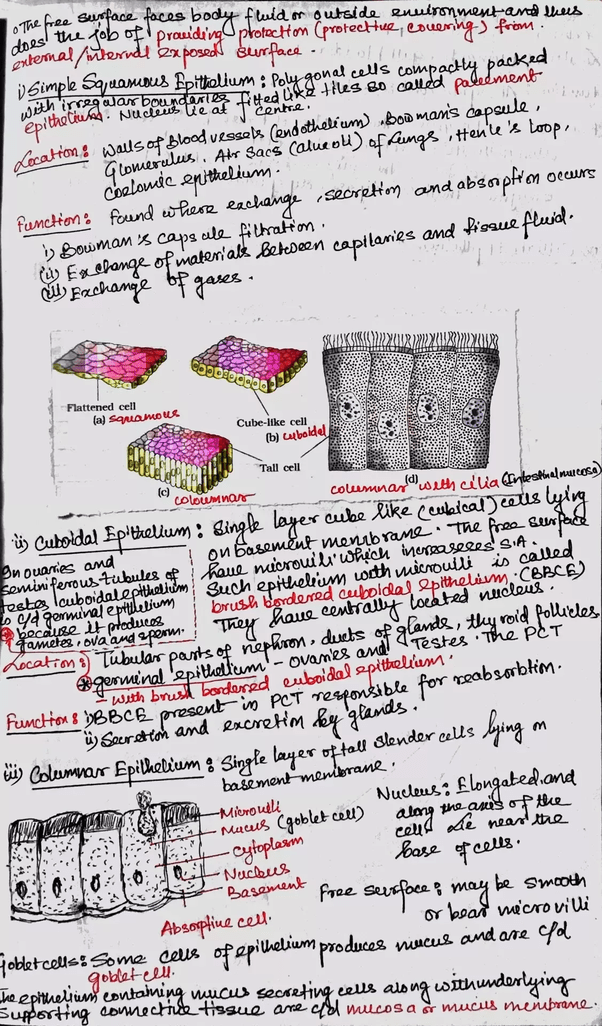 The free surface faces body fluid or outside environment and thus
does the job of providing protection (protective, covering) from
external/internal exposed surface.
i) Simple Squamous Epithelium: Polygonal cells compactly packed
with irregular boundaries fitted like tiles so called pavement
epithelium. Nucleus lie at centre.
Location: Walls of Blood vessels (endothelium), Bowman's capsule,
Glomerulus, Air Sacs (alveoli) of lungs, Henle's Loop,
coelomic epithelium.
Function: Found where exchange, secretion and absorption occurs
i) Bowman's capsule filtration.
(ii) Exchange of materials between capilaries and tissue fluid.
(iii) Exchange of gases.
Flattened cell
(a) squamous
Cube-like cell
(b) cuboidal
Tall cell
(c) coloumnar
(d)
columnar with cilia (Intestinal mucosa)
ii) Cuboidal Epithelium: Single layer cube like (cubical) cells lying
on basement membrane. The free surface
have microvilli which increasees S.A.
Such epithelium with microvilli is called
brush bordered cuboidal epithelium. (BBCE)
They have centrally located nucleus.
In ovaries and
seminiferous tubules of
testes (cuboidal epithelium
is c/d germinal epithelium
because it produces
gametes, ova and sperm.
Location: Tubular parts of nephron, ducts of glands, thyroid follicles
germinal epithelium - ovaries and Testes. The PCT
- with brush bordered cuboidal epithelium.
Function: i) BBCE present in PCT responsible for reabsorbtion.
ii) Secretion and excretion by glands.
iii) Columnar Epithelium: Single layer of tall slender cells lying on
basement membrane.
Nucleus: Elongated and
along the axis of the
cell lie near the
base of cells.
Microvilli
Mucus (goblet cell)
Cytoplasm
Nucleus
Basement
Absorptive cell.
Free surface: may be smooth
or bear microvilli
Goblet cells: Some cells of epithelium produces mucus and are c/d
goblet cell.
The epithelium containing mucus secreting cells along with underlying
supporting connective tissue are c/d mucosa or mucus membrane.